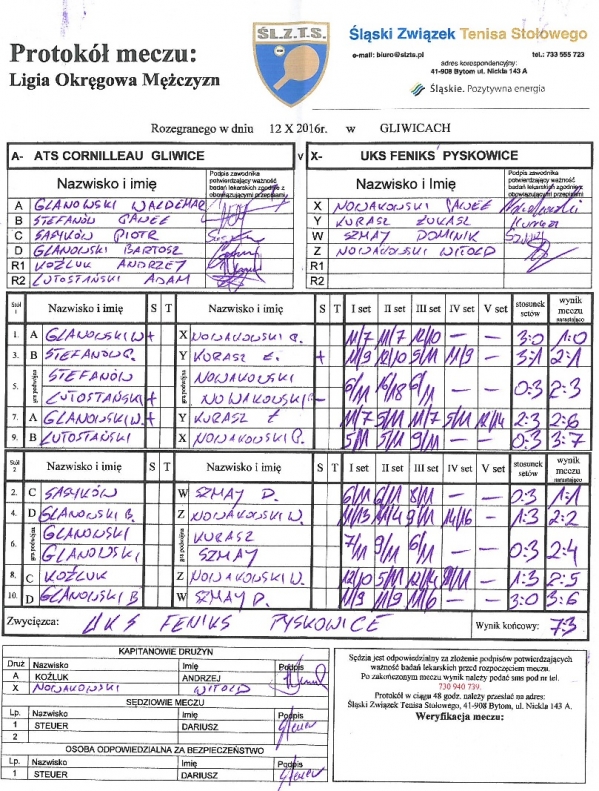 ŚL.Z.T.S.
Śląski Związek Tenisa Stołowego
e-mail: biuro@slzts.pl tel.: 733 555 723
adres korespondencyjny:
41-908 Bytom ul. Nickla 143 A
Śląskie. Pozytywna energia
Protokół meczu:
Ligia Okręgowa Mężczyzn
Rozegranego w dniu 12 X 2016r. w GLIWICACH
A- ATS CORNILLEAU GLIWICE v X- UKS FENIKS PYSKOWICE
Nazwisko i Imię Podpis zawodnika potwierdzający ważność badań lekarskich zgodnie z obowiązującymi przepisami Nazwisko i imię Podpis zawodnika potwierdzający ważność badań lekarskich zgodnie z obowiązującymi przepisami
A GLANOWSKI WALDEMAR X NOWAKOWSKI PAWEŁ
B STEFANÓW PAWEŁ Y KURASZ ŁUKASZ
C SASYKÓW PIOTR W SZMAY DOMINIK
D GLANOWSKI BARTOSZ Z NOWAKOWSKI WITOLD
R1 KOŹLUK ANDRZEJ R1
R2 LUTOSTAŃSKI ADAM R2
Stół 1 Nazwisko i imię S T Nazwisko i imię S T I set II set III set IV set V set stosunek setów wynik meczu narastająco
1. A GLANOWSKI W + X NOWAKOWSKI P. 11/7 11/7 12/10 — — 3:0 1:0
3. B STEFANÓW P. Y KURASZ Ł. + 11/9 12/10 5/11 11/9 — 3:1 2:1
5. gra podwójna STEFANÓW gra podwójna NOWAKOWSKI
LUTOSTAŃSKI + NOWAKOWSKI — 6/11 16/18 6/11 — — 0:3 2:3
7. A GLANOWSKI W. + Y KURASZ Ł 11/7 5/11 11/7 5/11 12/14 2:3 2:6
9. B LUTOSTAŃSKI X NOWAKOWSKI P. 5/11 5/11 9/11 — — 0:3 3:7
Stół 2 Nazwisko i imię S T Nazwisko i imię S T I set II set III set IV set V set stosunek setów wynik meczu narastająco
2. C SASYKÓW W SZMAY D. 6/11 6/11 8/11 — — 0:3 1:1
4. D GLANOWSKI B. Z NOWAKOWSKI W. 11/13 11/4 9/11 14/16 — 1:3 2:2
6. gra podwójna GLANOWSKI gra podwójna KURASZ
GLANOWSKI SZMAY 7/11 9/11 6/11 — — 0:3 2:4
8. C KOŹLUK Z NOWAKOWSKI W. 12/10 5/11 12/14 — 1:3 2:5
10. D GLANOWSKI B W SZMAY D. 11/9 11/9 11/6 — — 3:0 3:6
Zwycięzca: UKS FENIKS PYSKOWICE Wynik końcowy: 7:3
KAPITANOWIE DRUŻYN
Druż Nazwisko Imię Podpis
A KOŹLUK ANDRZEJ
X NOWAKOWSKI WITOLD
SĘDZIOWIE MECZU
Lp. Nazwisko Imię Podpis
1 STEUER DARIUSZ Steuer
2
OSOBA ODPOWIEDZIALNA ZA BEZPIECZEŃSTWO
Lp. Nazwisko Imię Podpis
1 STEUER DARIUSZ Steuer
Sędzia jest odpowiedzialny za złożenie podpisów potwierdzających
ważność badań lekarskich przed rozpoczęciem meczu.
Po zakończonym meczu wynik należy podać sms pod nr tel.
730 940 739.
Protokół w ciągu 48 godz. należy przesłać na adres:
Śląski Związek Tenisa Stołowego, 41-908 Bytom, ul. Nickla 143 A.
Weryfikacja meczu: